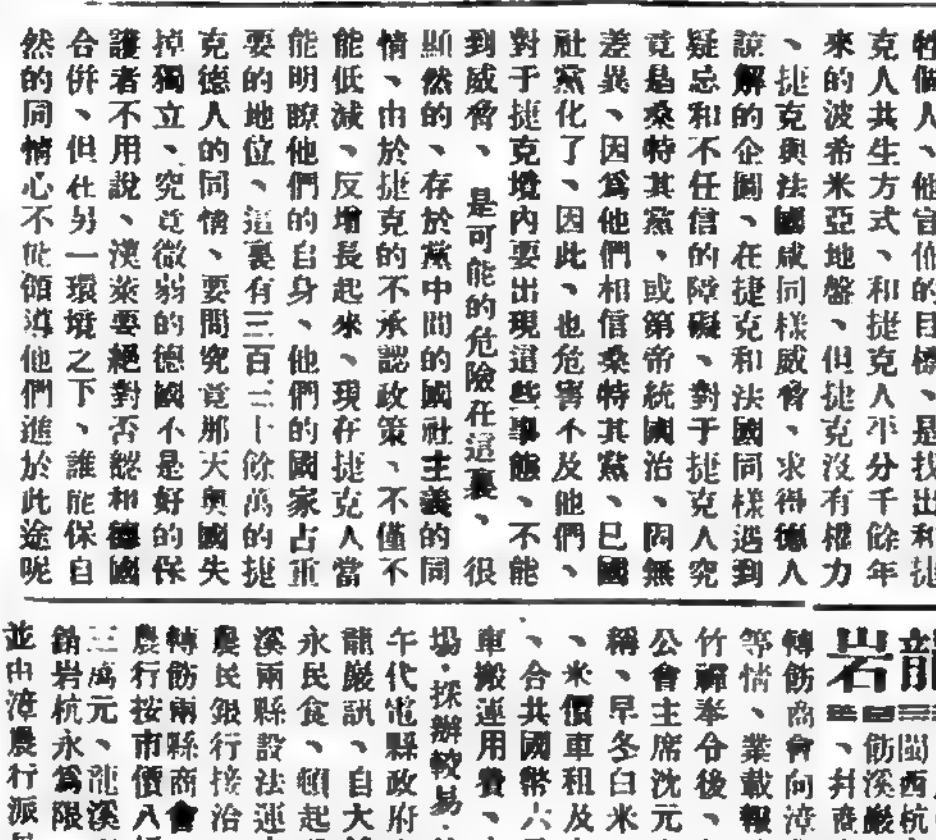 牲個人、他宣佈的目標、是找出和捷
克人共生方式、和捷克人平分千餘年
來的波希米亞地盤、但捷克沒有權力
、捷克與法國感同樣威脅、求得德人
諒解的企圖、在捷克和法國同樣遇到
疑忌和不任信的障礙、對于捷克人究
竟是桑特其黨、或第帝統國治、因無
差異、因為他們相信桑特其黨、已國
社黨化了、因此、也危害不及他們、
對于捷克境內要出現這些事態、不能
到威脅、是可能的危險在這裏、很
顯然的、存於黨中間的國社主義的同
情、由於捷克的不承認政策、不僅不
能低減、反增長起來、現在捷克人當
能明瞭他們的自身、他們的國家占重
要的地位、這裏有三百三十餘萬的捷
克德人的同情、要問究竟那大奧國失
掉獨立、究竟微弱的德國不是好的保
護者不用說、漢萊要絕對否認和德國
合併、但在另一環境之下、誰能保自
然的同情心不能領導他們進於此途呢
龍
岩
閩西杭
飭溪巖
、井商
轉飭商會向漳
等情、業載報
竹稱奉令後、
公會主席沈元
稱、早冬白米
、米價車租及
、合共國幣六
車搬運用費、
場.採辦較易.
午代電縣政府
龍巖訊、自大
永民食、賴起
溪兩縣設法運
農民銀行接治
轉飭兩縣商會
農行按市價八
三萬元、龍溪
銷岩杭永為限
並由漳農行派